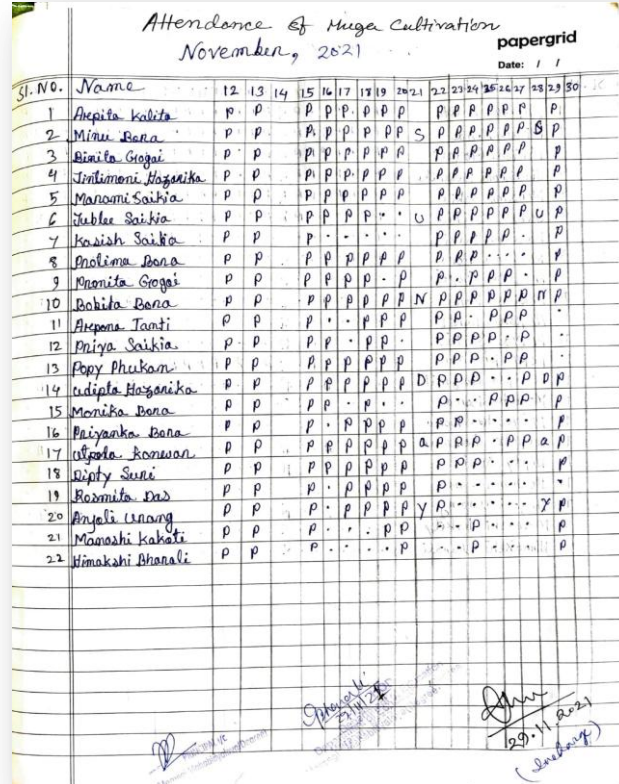 Attendance of Muga Cultivation
November, 2021
papergrid
Date: / /
Sl. No. Name 12 13 14 15 16 17 18 19 20 21 22 23 24 25 26 27 28 29 30
1 Arpita Kalita P P P P P P P P P P P P P P P
2 Minu Bora P P P P P P P P S P P P P P P S P
3 Binita Gogoi P P P P P P P P P P P P P P P
4 Jinlimoni Hazarika P P P P P P P P P P P P P P P
5 Manami Saikia P P P P P P P P P P P P P P P
6 Jublee Saikia P P P P P P . . U P P P P P P U P
7 Kasish Saikia P P P . . . . . P P P P P . P
8 Prolima Bora P P P P P P P P P P P . . . P
9 Pronita Gogoi P P P P P P . P P . P P P . P
10 Bobita Bora P P P P P P P P N P P P P P P N P
11 Arpona Tanti P P P . . P P P P P . P P P .
12 Priya Saikia P P P P . P P . P P P P . P .
13 Popy Phukan P P P P P P P P P P P . P P .
14 Udipta Hazarika P P P P P P P P D P P P . . P D P
15 Monika Bora P P P P . P . . P . . P P P P
16 Priyanka Bora P P P . P P P P P P . . . . P
17 Utpola Konwar P P P P P P P P a P P P . P P a P
18 Dipty Suri P P P P P P P P P P P . . . P
19 Rosmita Das P P P . P P P P P . . . . .
20 Anjoli Urang P P P . P P P P Y P . . . . . Y P
21 Manashi Kakoti P P P . . . P P . . P . . . P
22 Himakshi Bharali P P P . . . . P . . P . . . P
29.11.2021
(Incharge)